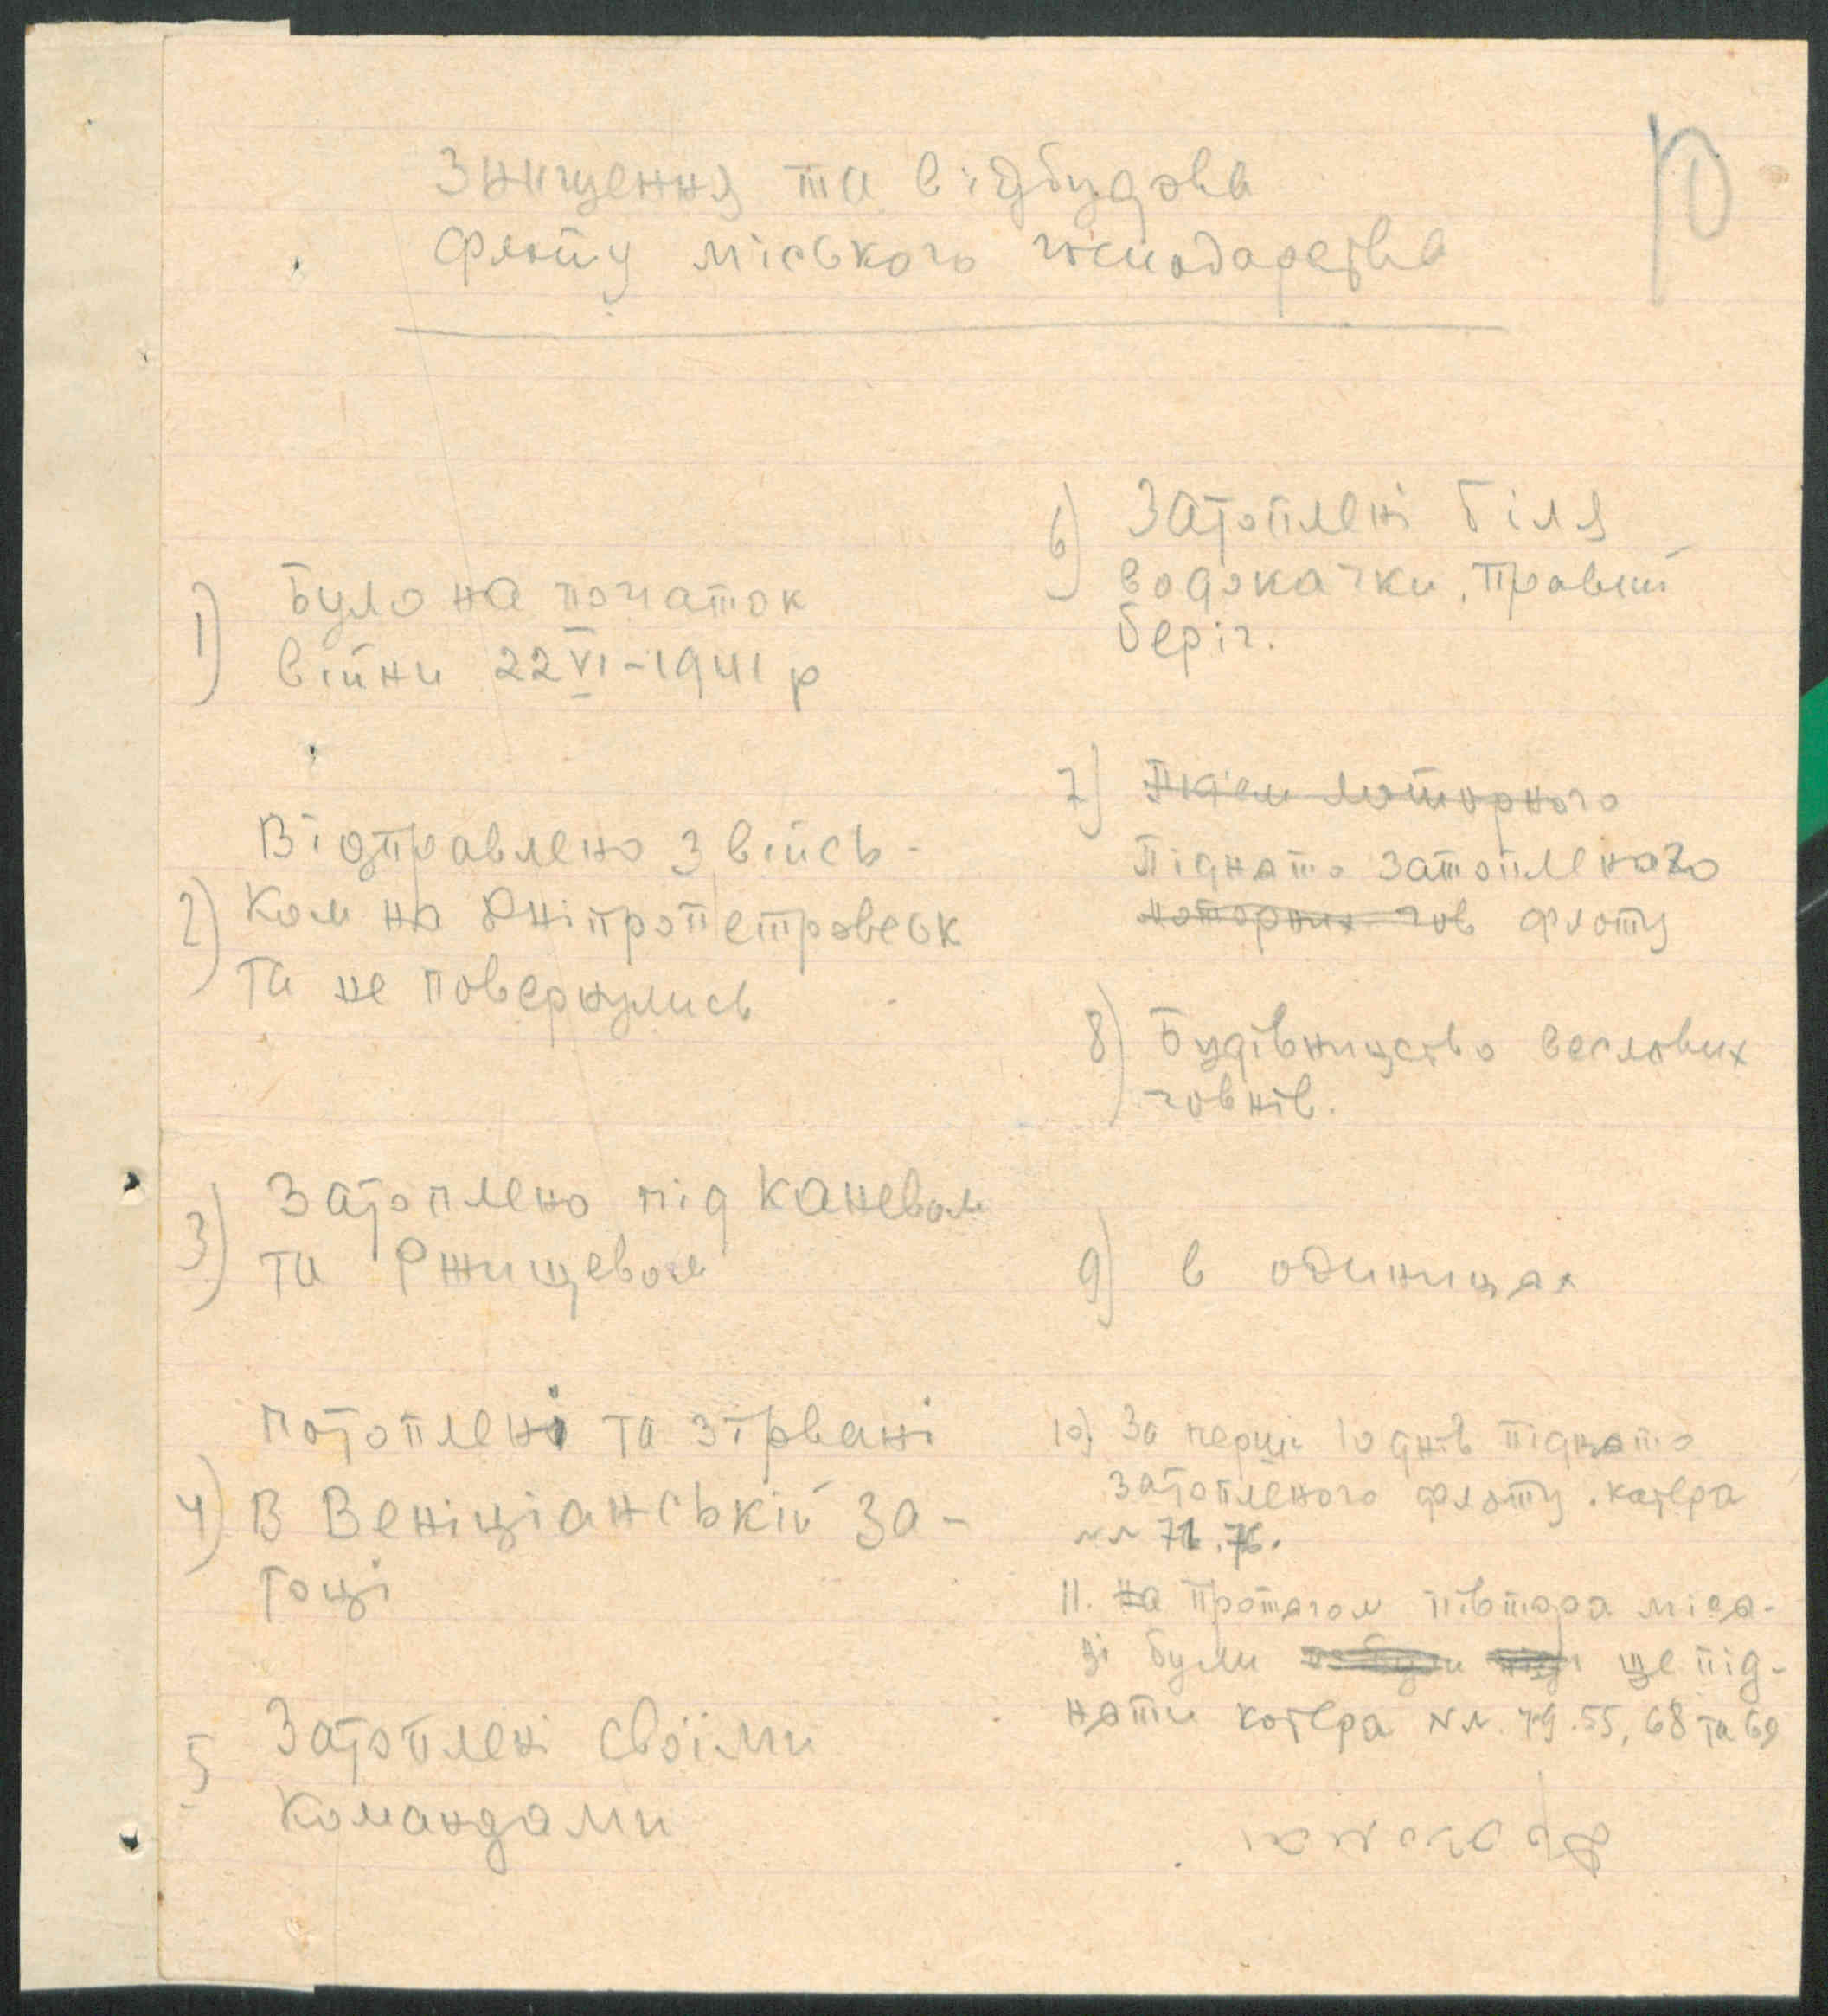 10
Знищення та відбудова
флоту міського господарства
1) Було на початок
війни 22 VI-1941 р
2) Відправлено з війсь-
ком на Дніпропетровськ
та не повернулись
3) Затоплено під Каневом
та Ржищевом
4) потоплені та зірвані
В Веніціанській за-
тоці
5 Затоплені своїми
командами
6) Затоплені біля
водокачки, правий
беріг.
7) моторного
Піднято затопленого
моторних чов флоту
8) Будівництво веслових
човнів.
9) в одиницях
10) За перші 10 днів піднято
затопленого флоту. катера
NN 71. 76.
11. на Протягом півтора міся-
зі були ще під-
няти катера NN. 79. 55, 68 та 69